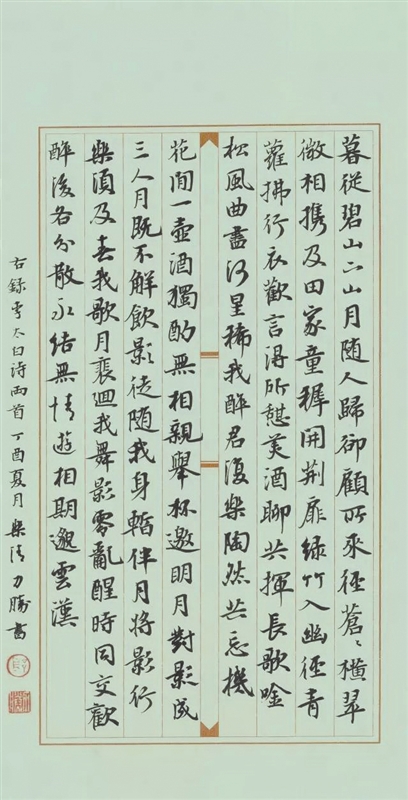 暮從碧山下山月隨人歸卻顧所來徑蒼〻橫翠
微相攜及田家童穉開荆扉綠竹入幽徑青
蘿拂行衣歡言得所憩美酒聊共揮長歌吟
松風曲盡河星稀我醉君復樂陶然共忘機
花間一壺酒獨酌無相親舉杯邀明月對影成
三人月既不解飲影徒隨我身暫伴月將影行
樂須及春我歌月裵迴我舞影零亂醒時同交歡
醉後各分散永結無情遊相期邈雲漢
右錄李太白詩兩首丁酉夏月樂清力勝書